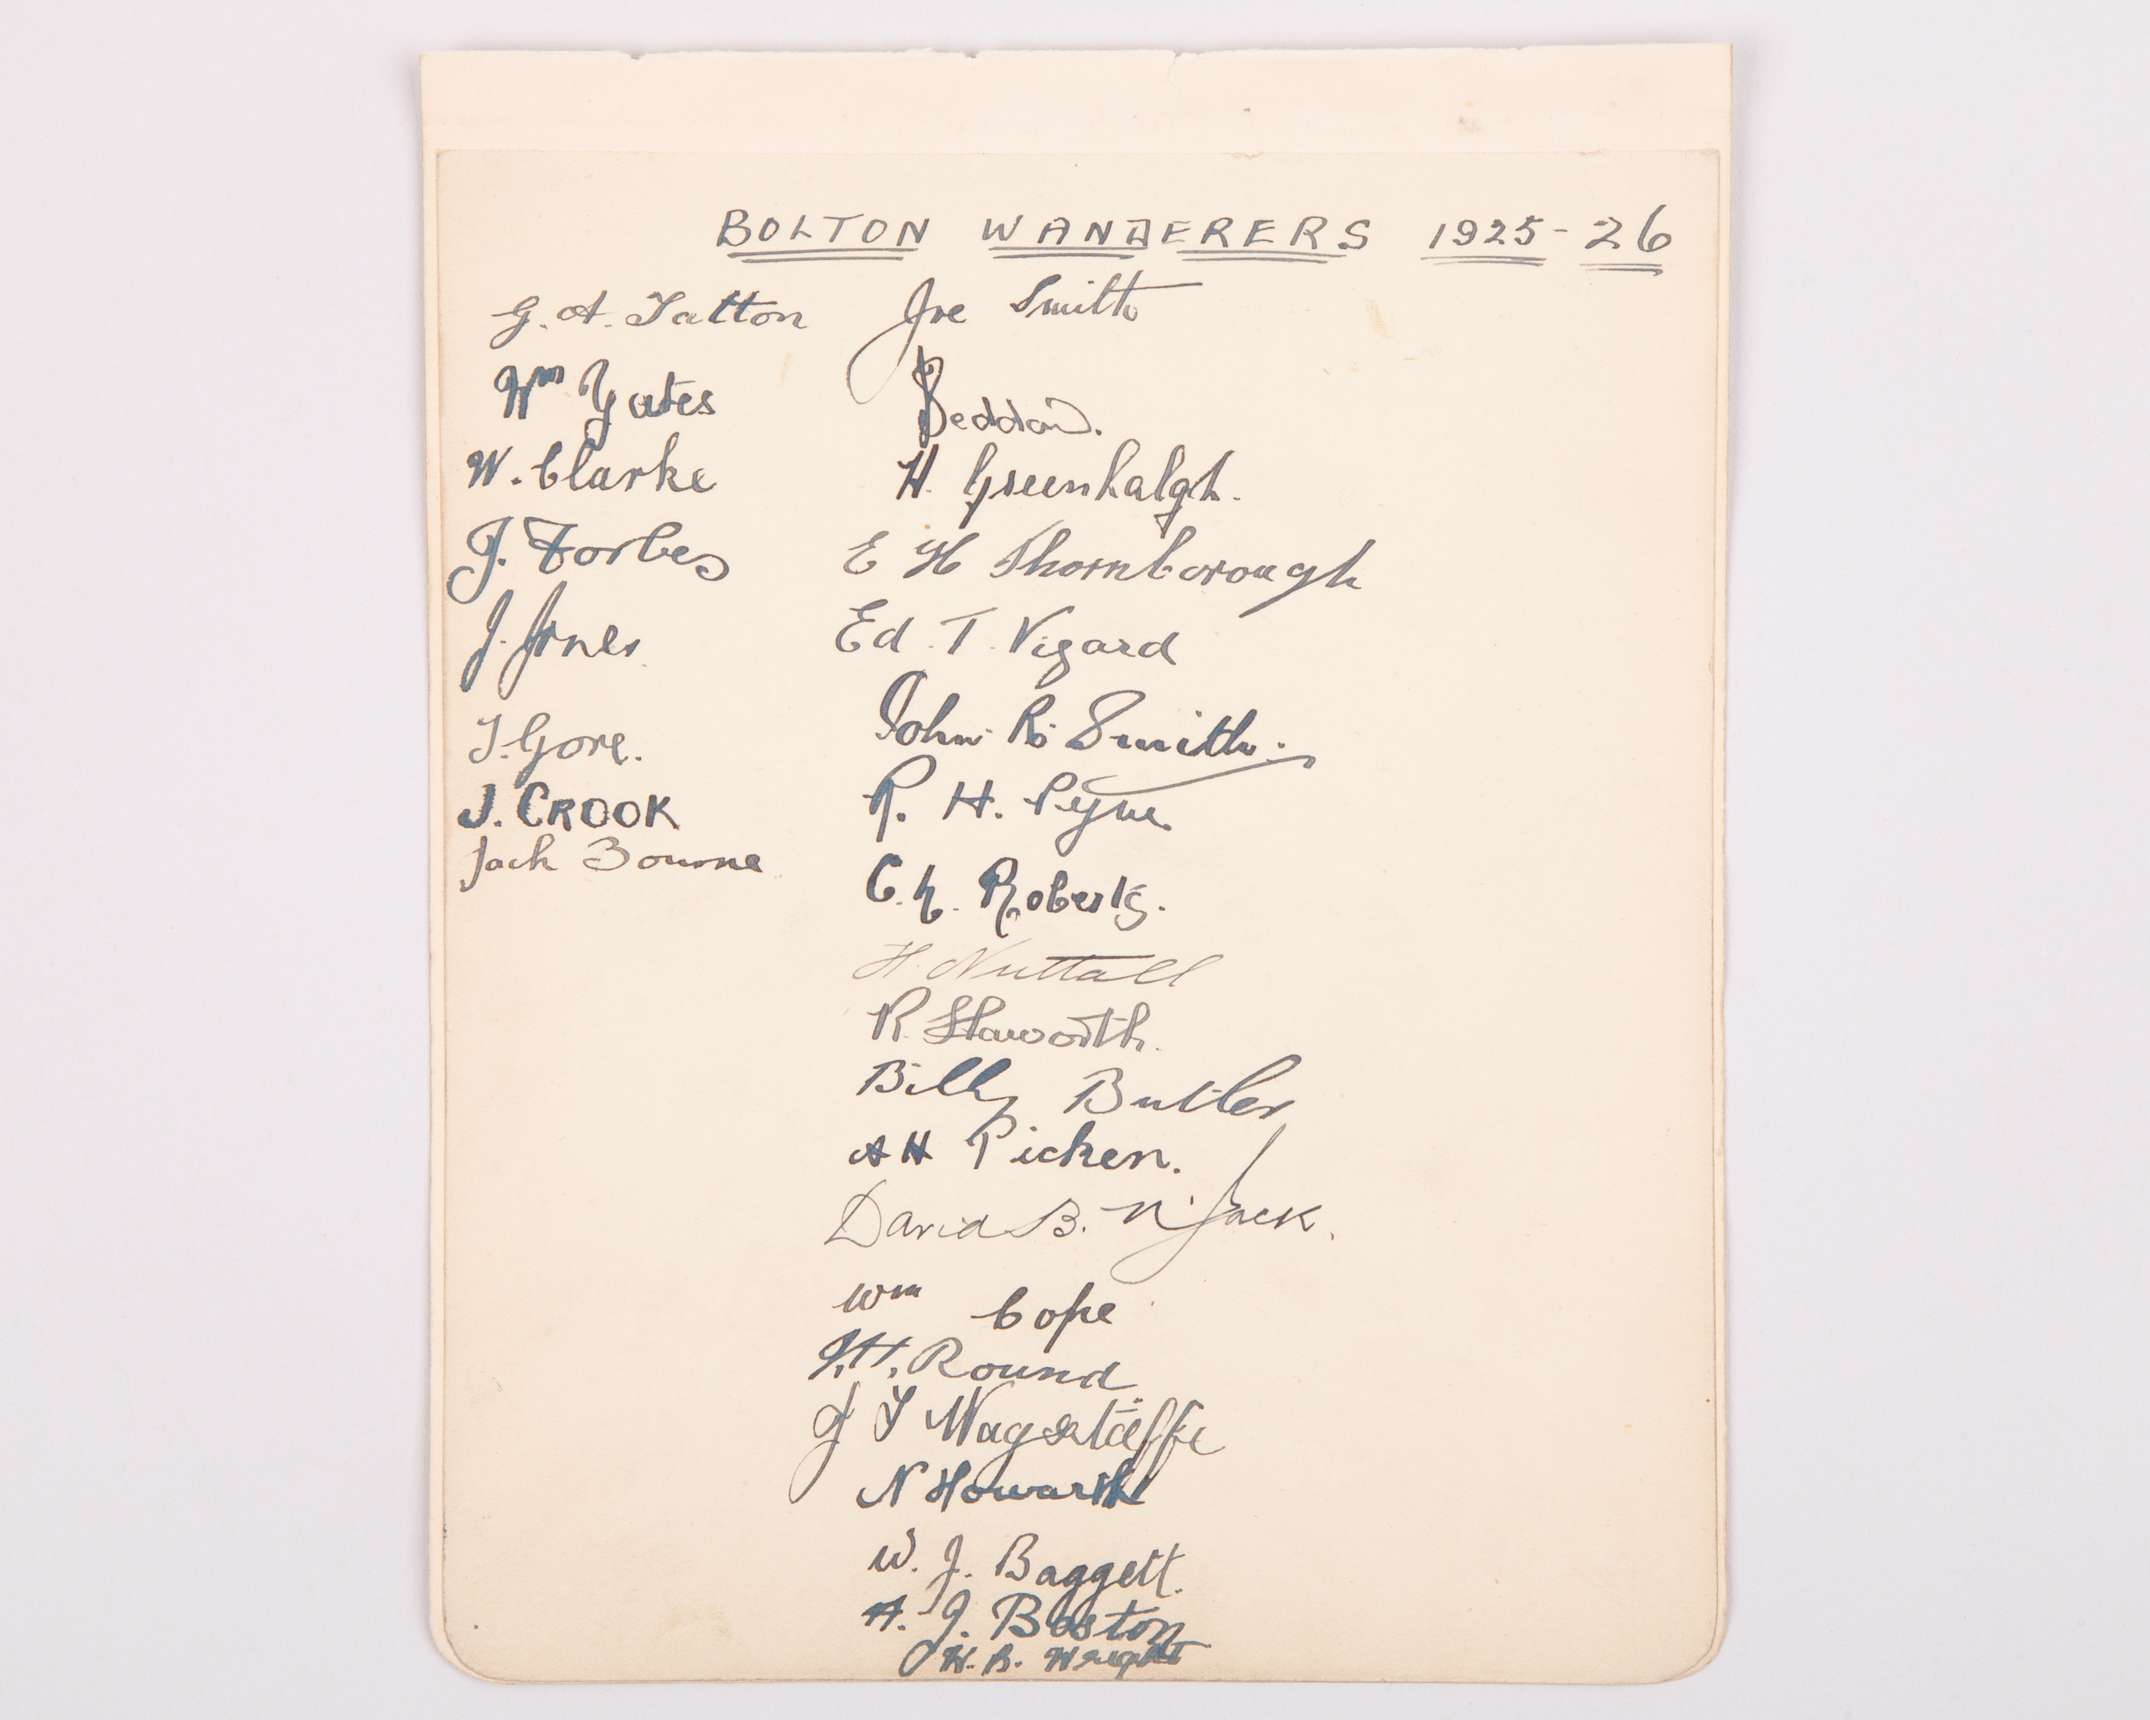 BOLTON WANDERERS 1925-26
G. A. Tatton
Wm Yates
W. Clarke
J. Forbes
J. Jones
T. Gore.
J. CROOK
Jack Bourne
Joe Smith
Seddon.
H. Greenhalgh.
E H Thornborough
Ed. T. Vizard
John R. Smith.
R. H. Pym.
C. L. Roberts.
H. Nuttall
R. Haworth.
Billy Butler
A H Picken.
David B. N. Jack.
Wm Cope
J. H. Round
J T Wagstaffe
N Howarth
W. J. Baggett.
H. J. Baston
W. B. Wright